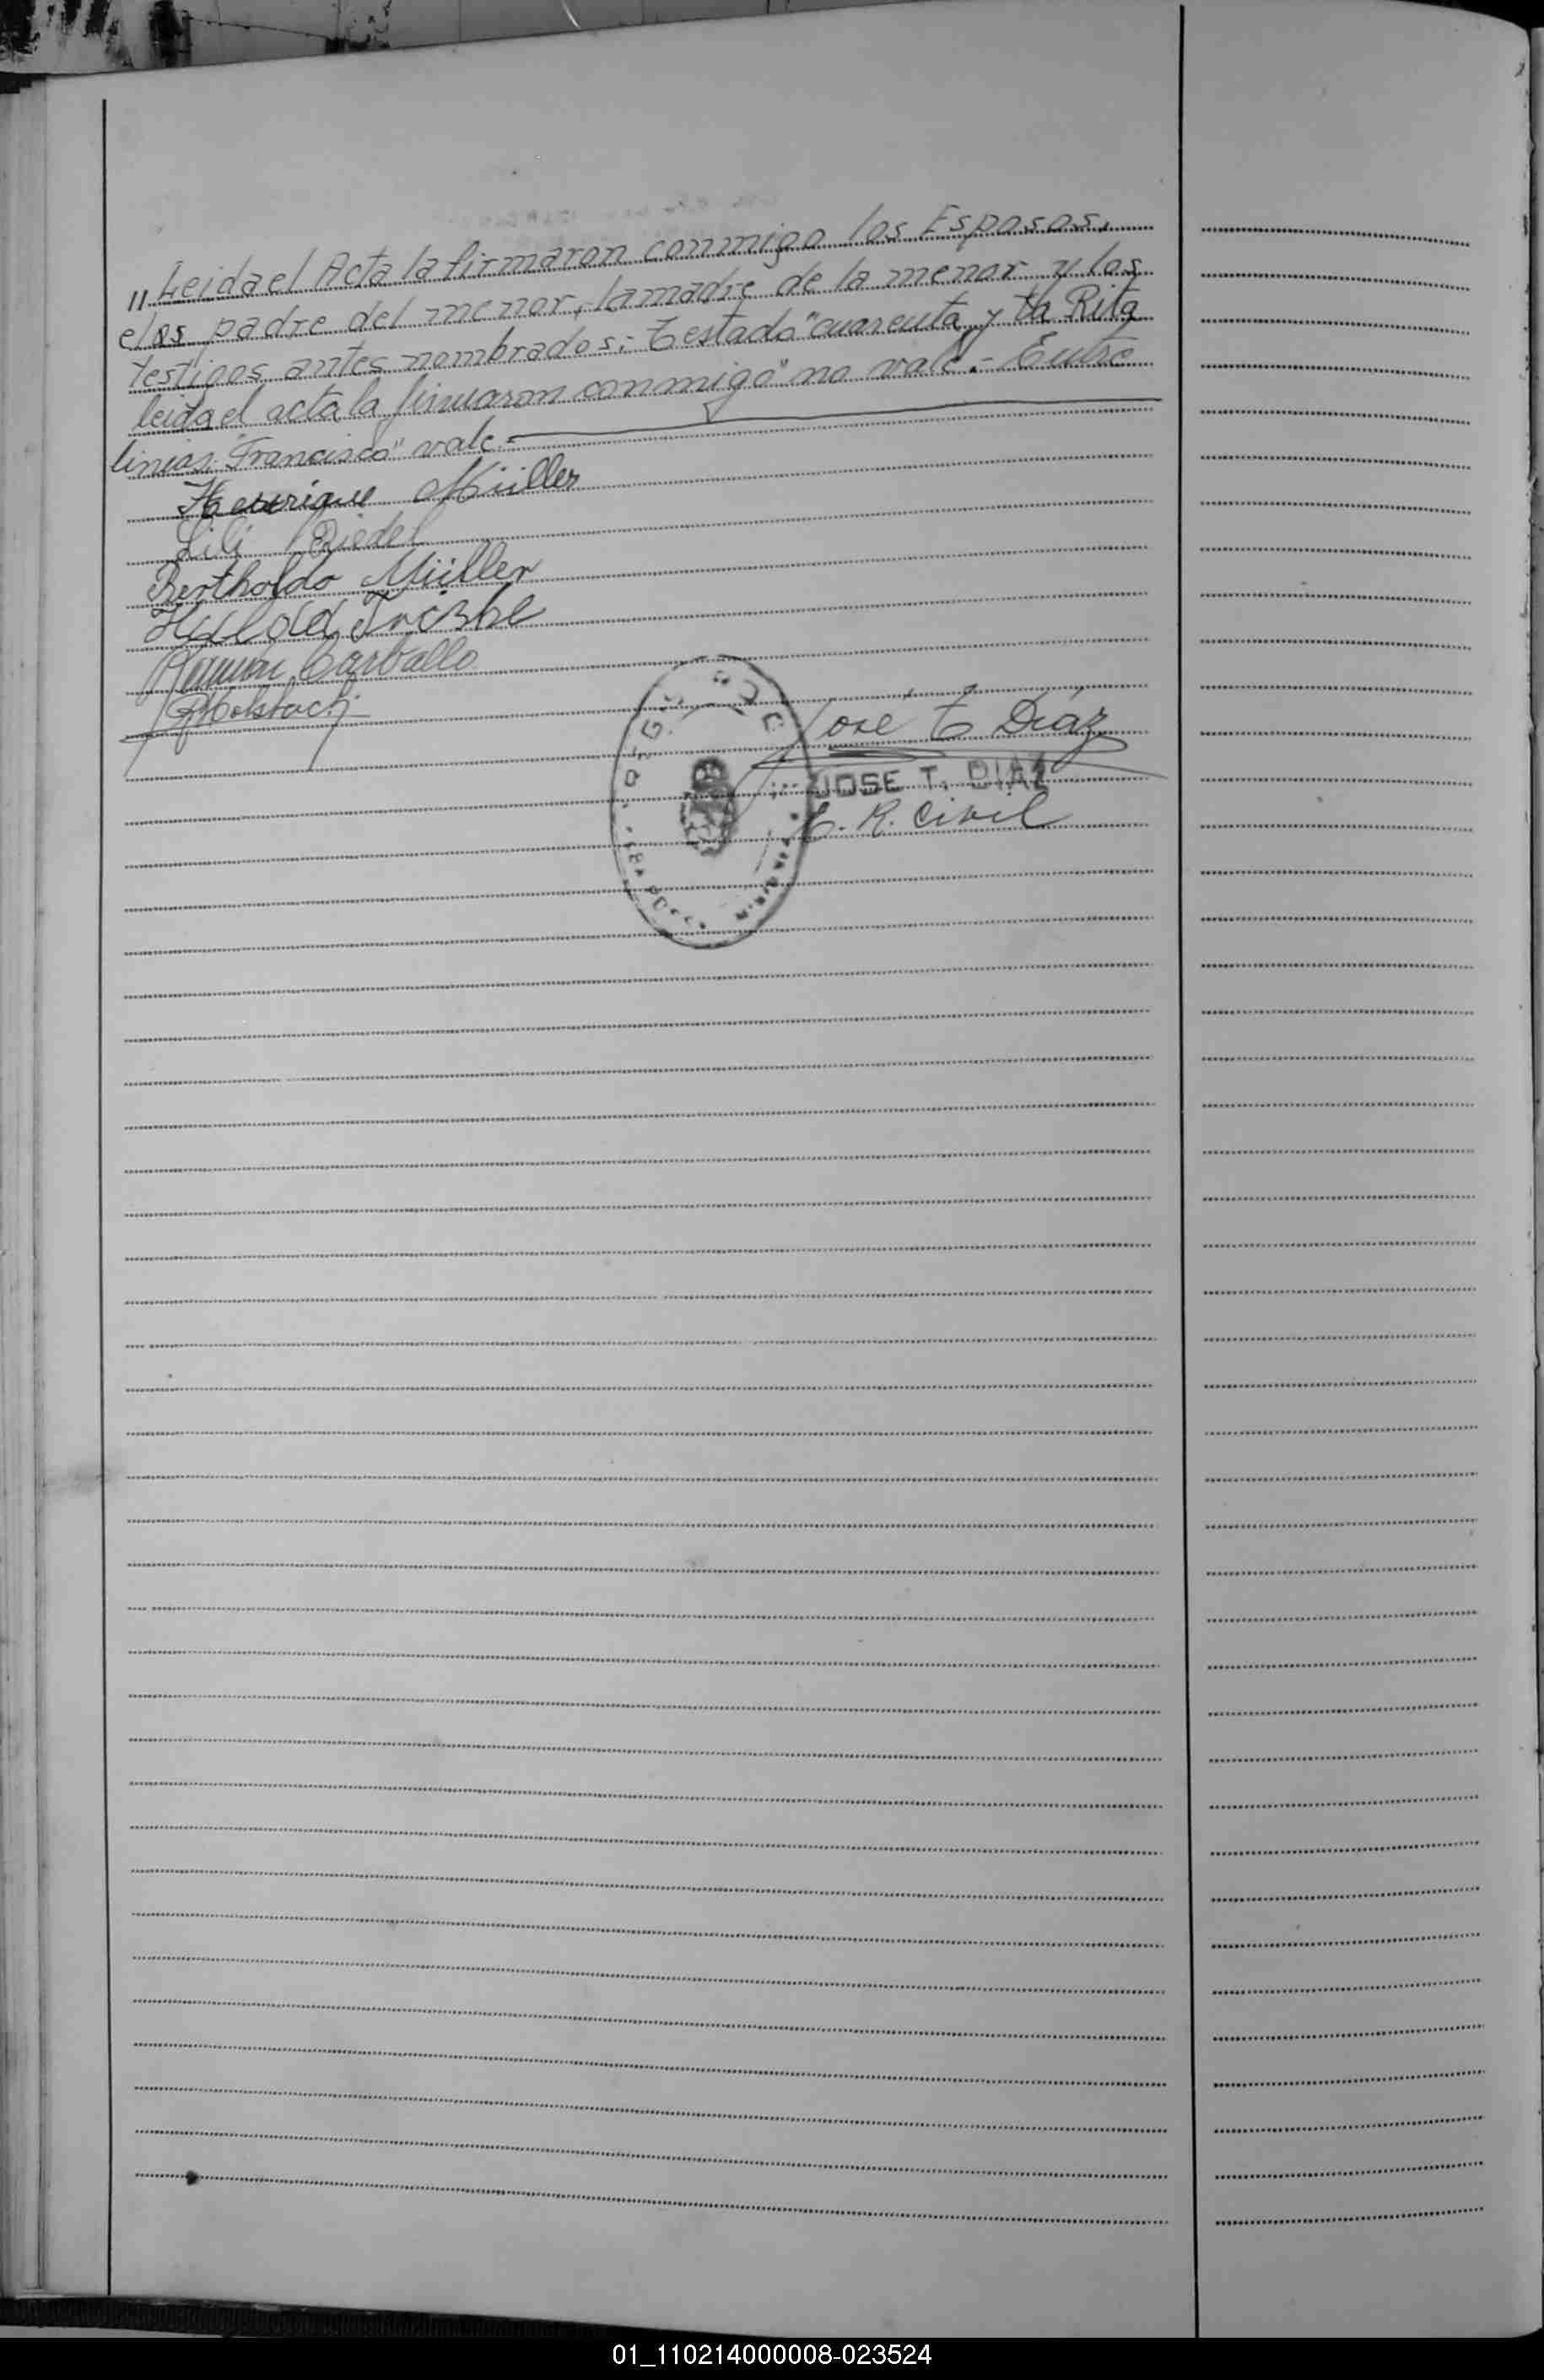 "Leida el Acta la firmaron conmigo los Esposos,
el os padre del menor, la madre de la menor y los
testigos antes nombrados:- Testado "cuarenta y Rita
leida el acta la firmaron conmigo" no vale.- Entre
linias "Francisco" vale.-
Henrique Müller
Lili Riedel
Bertholdo Müller
Hulda
Carballo
José T Díaz
JOSE T. DIAZ
R. Civil
01_110214000008-023524